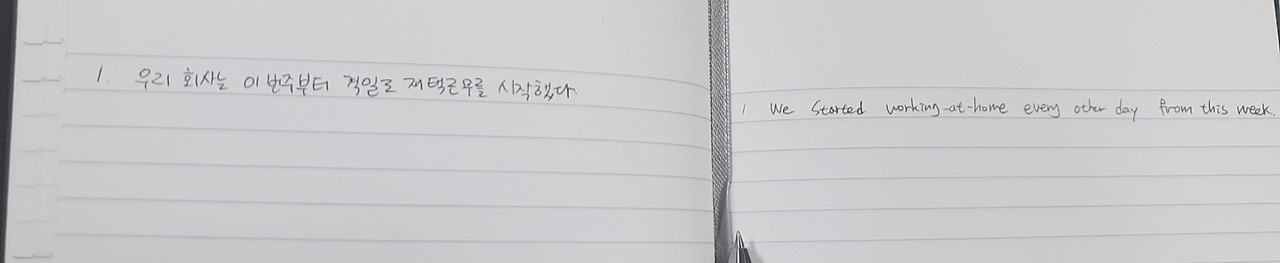 1. 우리 회사는 이번주부터 격일로 재택근무를 시작했다.
1 We started working-at-home every other day from this week.